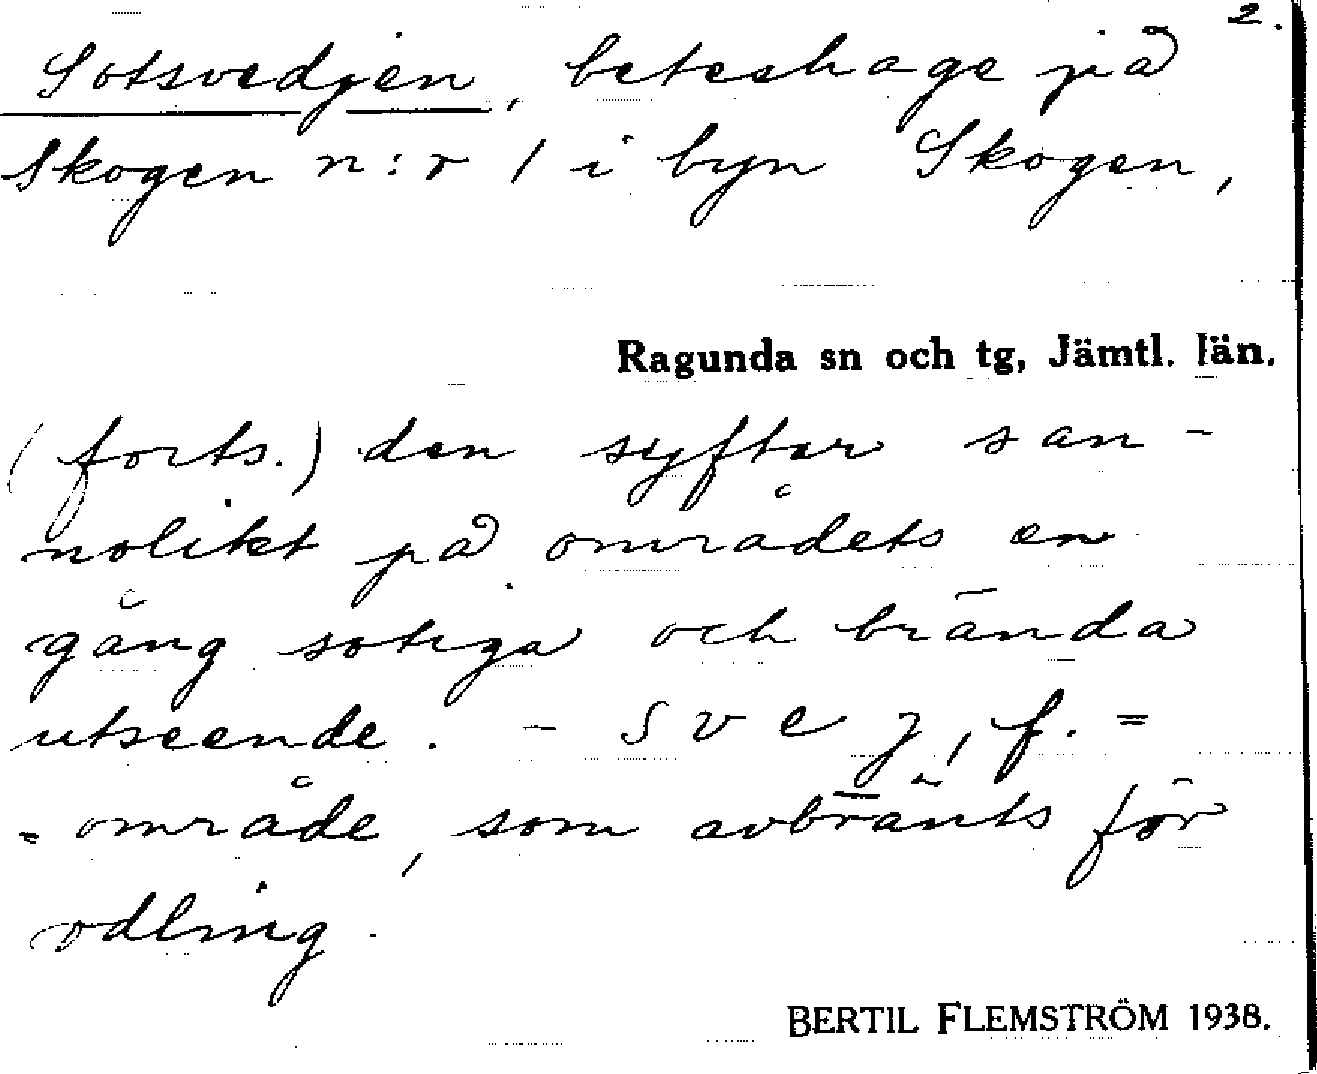 2.
Sotsvedjen, beteshage på
Skogen n:r 1 i byn Skogen,
Ragunda sn och tg, Jämtl. län.
(forts.) den syftar san-
nolikt på områdets en
gång sotiga och brända
utseende. - svej, f. =
= område, som avbränts för
odling.
BERTIL FLEMSTRÖM 1938.